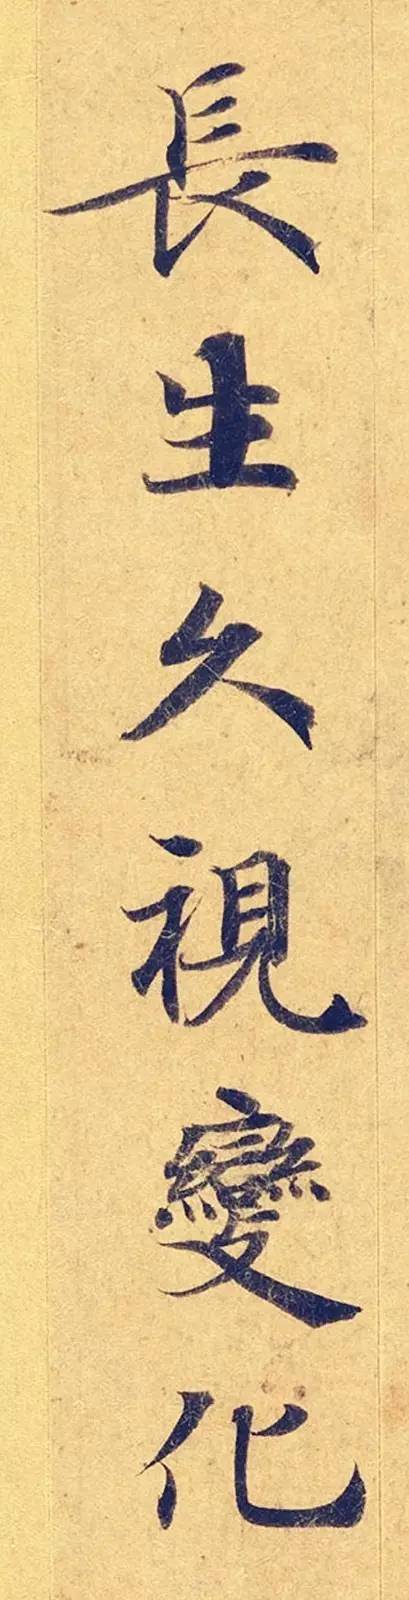 長生久視變化